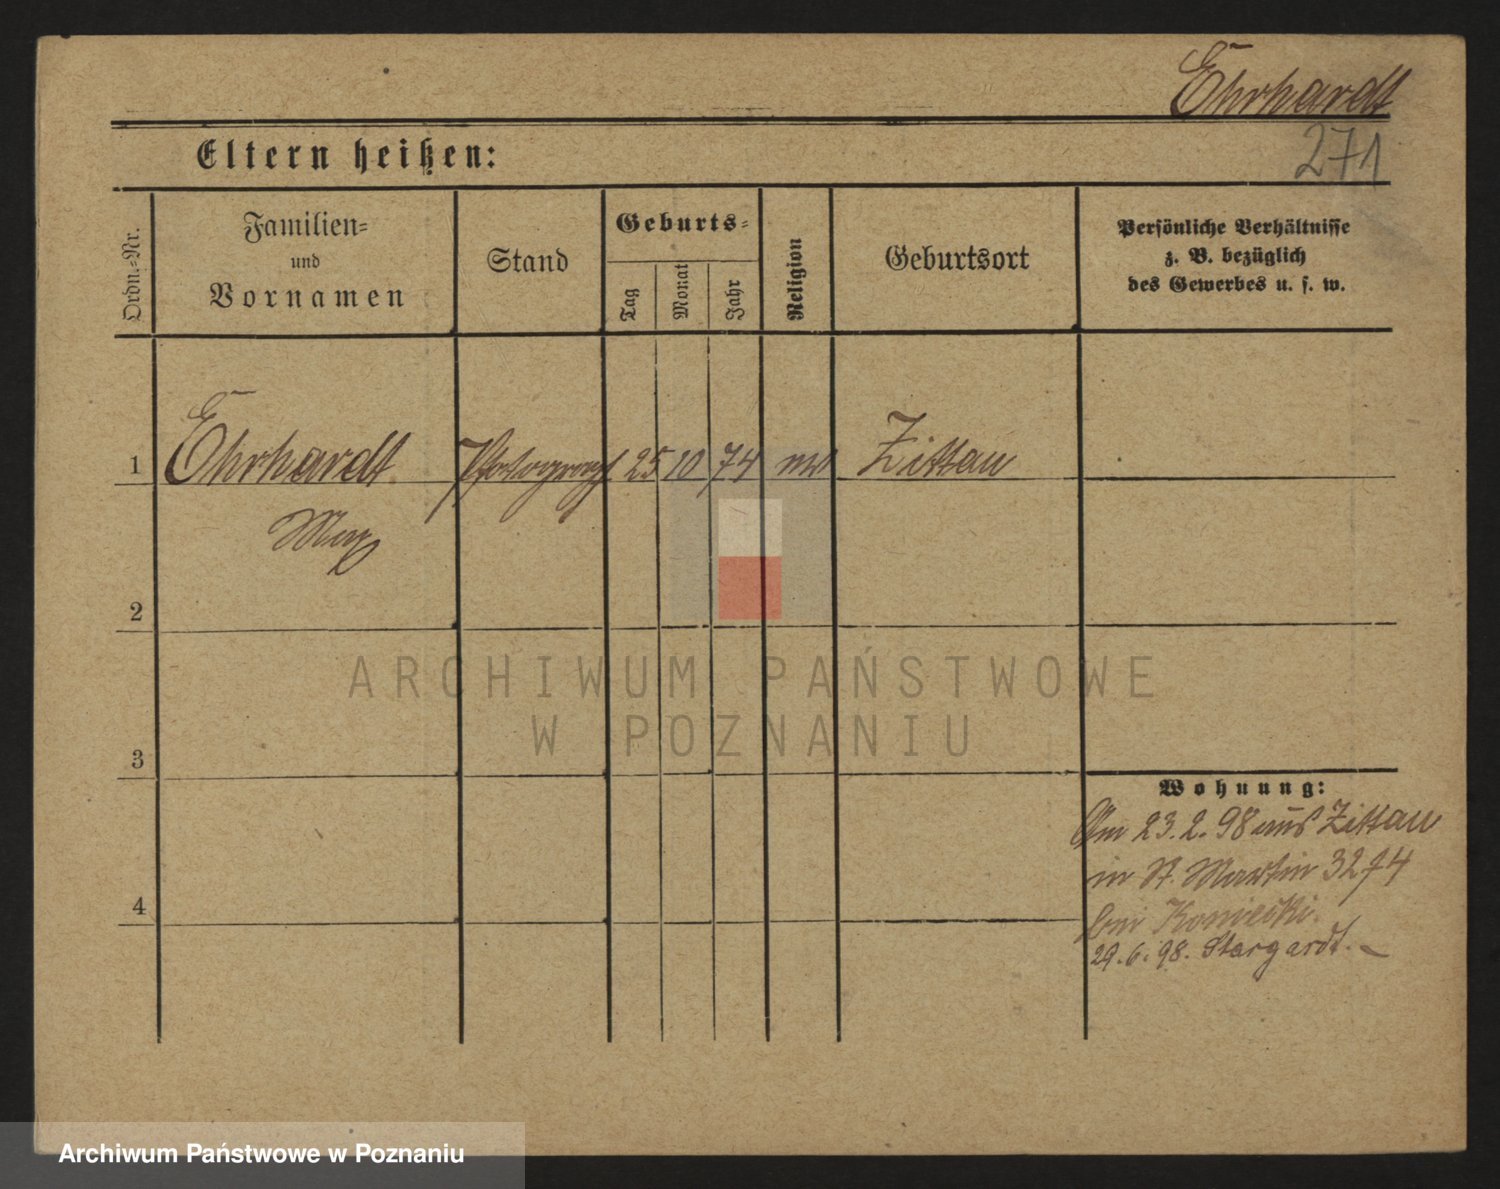 Ehrhardt
271
Eltern heißen:
Ordn.-Nr.
Familien-
und
Vornamen
Stand
Geburts-
Tag
Monat
Jahr
Religion
Geburtsort
Persönliche Verhältnisse
z. B. bezüglich
des Gewerbes u. s. w.
1 Ehrhardt Photograph 25 10 74 Zittau
Max
2
ARCHIWUM PAŃSTWOWE
W POZNANIU
3
Wohnung:
Am 23.2.98 aus Zittau
in St. Martin
4
bei
29.6.98. Stargardt.
Archiwum Państwowe w Poznaniu